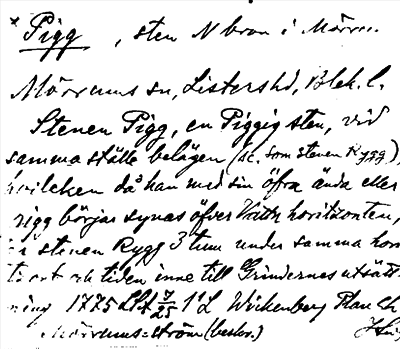 * Pigg, sten N bron i Mörrum
Mörrums sn, Listershd, Blek. l.
Stenen Pigg, en Piggig sten, vid
samma ställe belägen (sc. som stenen Rygg),
hvilcken då han med sin öfra ända eller
rigg börjar synas öfver horitzonten,
är stenen Rygg 3 tum under samma hori
och tiden inne till Grindernes utsätt
ning 1775 Wickenberg Plan ch
Mörrums=ström (beskr.)